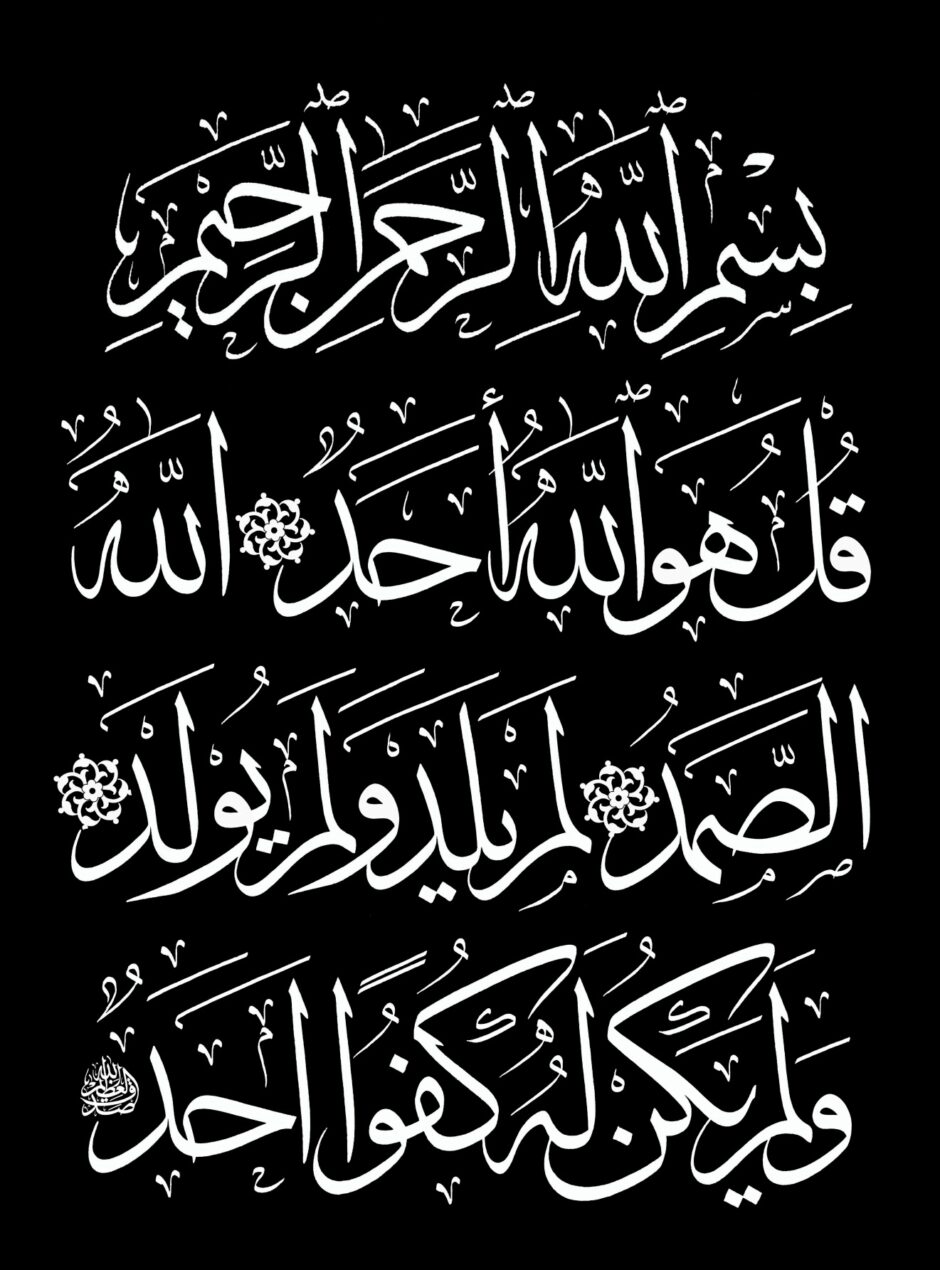 بِسْمِ ٱللَّهِ ٱلرَّحْمَٰنِ ٱلرَّحِيمِ
قُلْ هُوَ ٱللَّهُ أَحَدٌ ۝ اللَّهُ
الصَّمَدُ ۝ لَمْ يَلِدْ وَلَمْ يُولَدْ ۝
وَلَمْ يَكُنْ لَهُ كُفُوًا أَحَدٌ
صدق الله العظيم